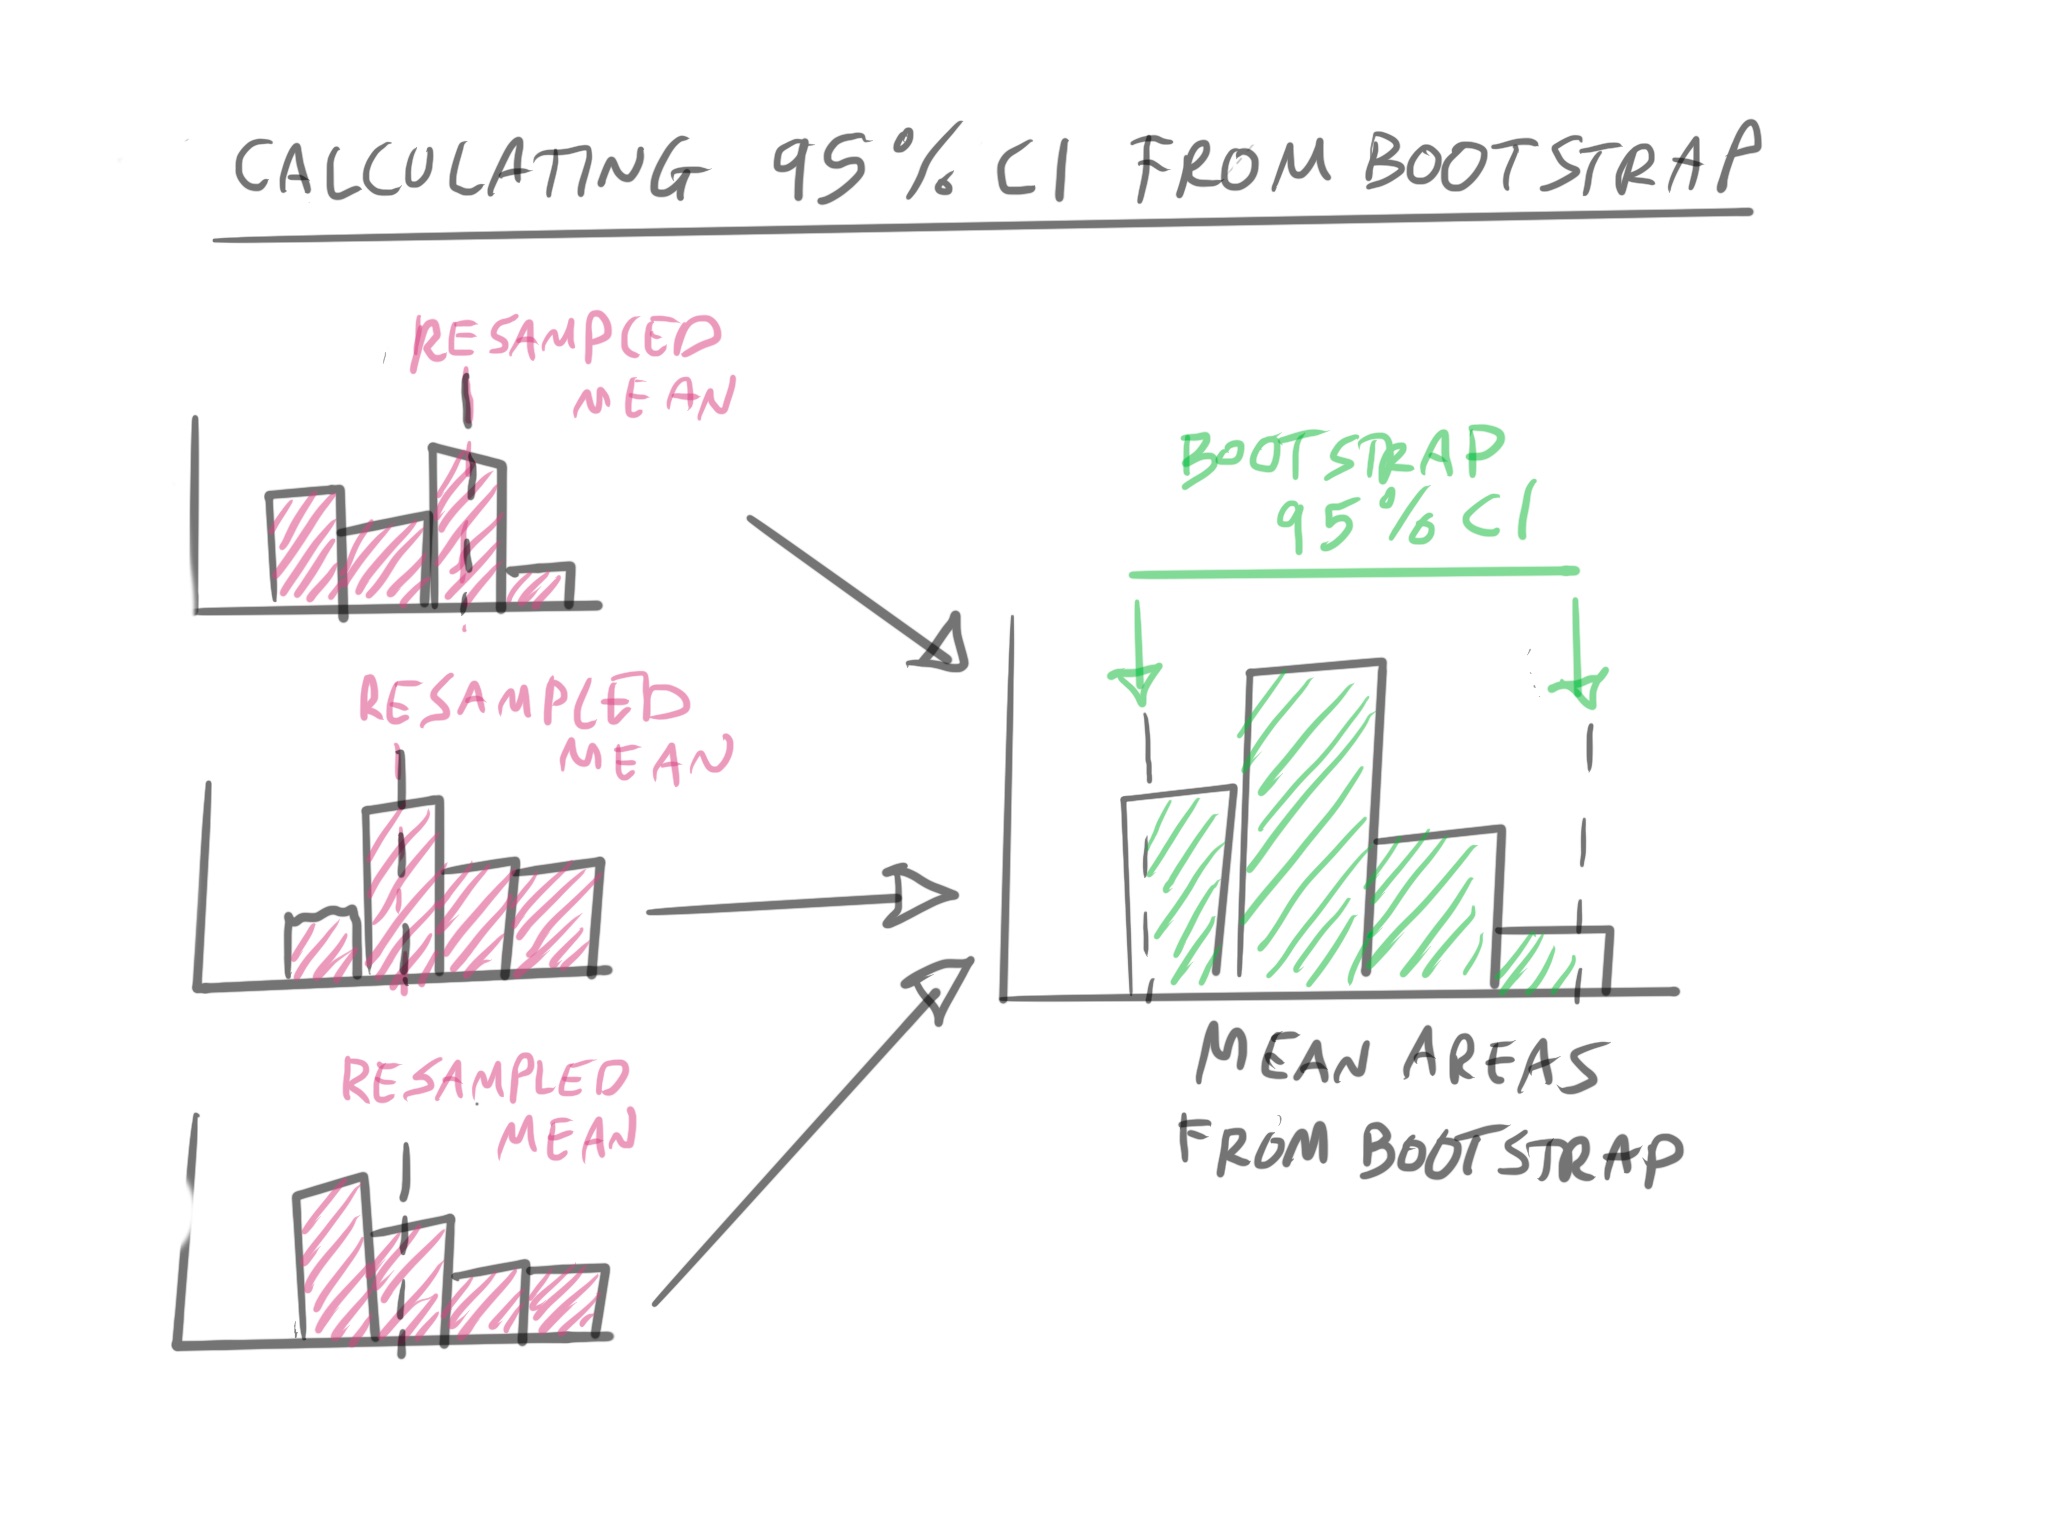 CALCULATING 95% CI FROM BOOTSTRAP
RESAMPLED
MEAN
RESAMPLED
MEAN
RESAMPLED
MEAN
BOOTSTRAP
95% CI
MEAN AREAS
FROM BOOTSTRAP